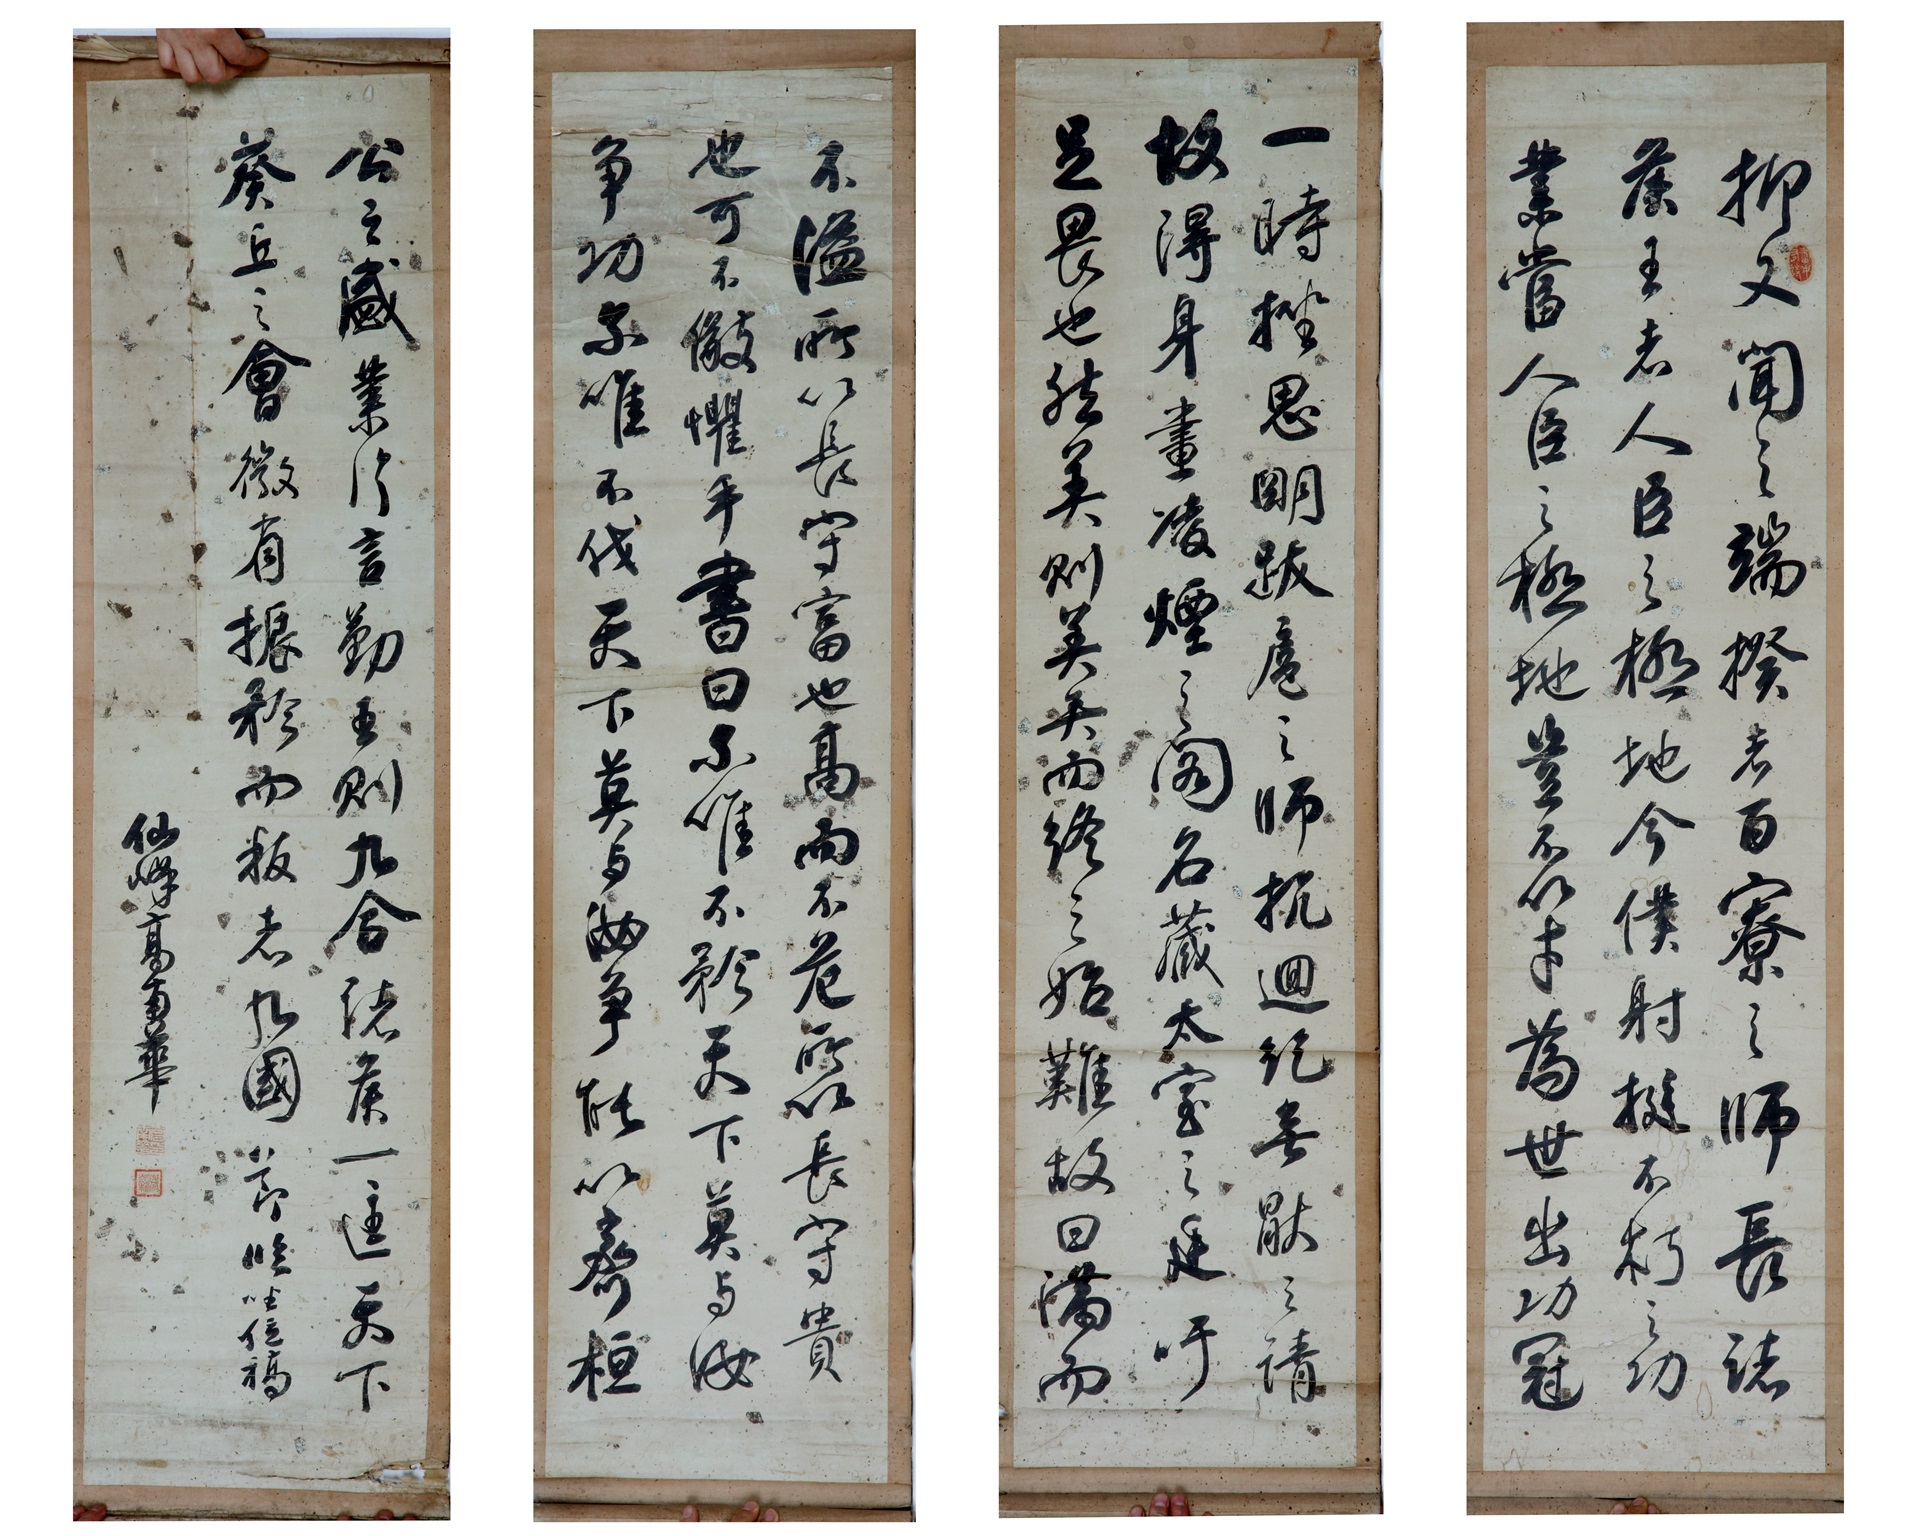 抑又聞之端揆者百寮之師長諸
侯王者人臣之極地今僕射挺不朽之功
業當人臣之極地豈不以才為世出功冠
一時挫思明跋扈之師抗迴紇無厭之請
故得身畫凌煙之閣名藏太室之廷吁
足畏也然美則美矣而終之始難故曰滿而
不溢所以長守富也高而不危所以長守貴
也可不儆懼乎書曰尔唯不矜天下莫与汝
争功尔唯不伐天下莫与汝争能以齊桓
公之盛業片言勤王則九合諸侯一匡天下
葵丘之會微有振矜而叛者九國 節臨坐位稿
仙峰高南華